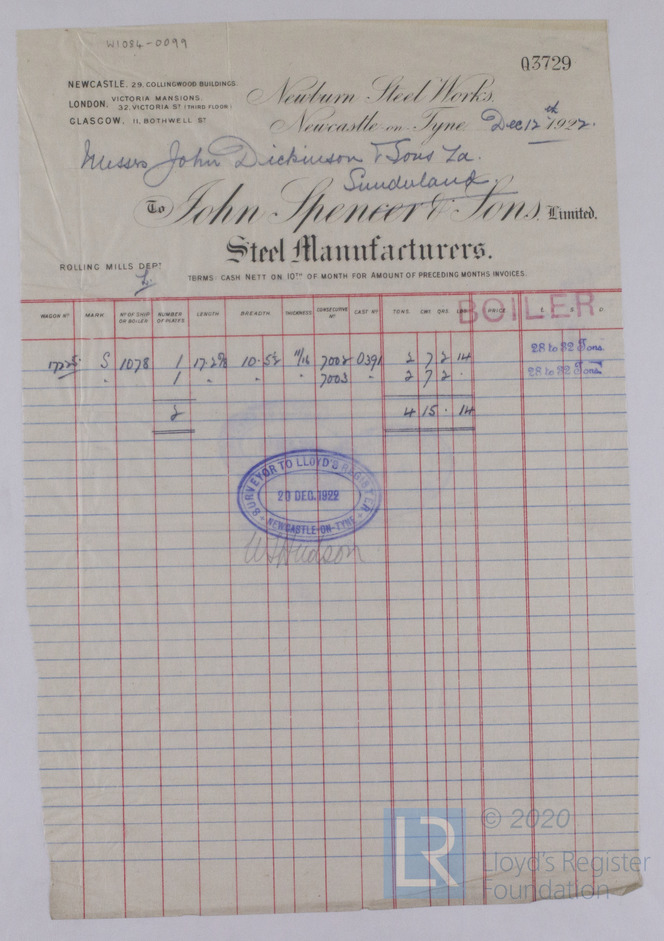 W1084-0099
03729
NEWCASTLE. 29, COLLINGWOOD BUILDINGS.
LONDON. VICTORIA MANSIONS. 32, VICTORIA ST (THIRD FLOOR)
GLASGOW, 11, BOTHWELL ST
Newburn Steel Works,
Newcastle-on-Tyne Dec 12th 1922.
Messrs John Dickinson & Sons Ld.
Sunderland.
To John Spencer & Sons, Limited,
Steel Manufacturers.
ROLLING MILLS DEPT
TERMS: CASH NETT ON 10TH OF MONTH FOR AMOUNT OF PRECEDING MONTHS INVOICES.
BOILER
WAGON No MARK No OF SHIP OR BOILER NUMBER OF PLATES LENGTH BREADTH THICKNESS CONSECUTIVE No CAST No TONS. CWT QRS. LBS PRICE £ S D
S 1078 1 10.5½ 11/16 7002 0391 2 7 2 14 28 to 32 Tons.
" 1 " " " 7003 " 2 7 2 . 28 to 32 Tons.
2 4 15 . 14
SURVEYOR TO LLOYD'S REGISTER
20 DEC. 1922
NEWCASTLE-ON-TYNE
Hudson
LR
© 2020
Lloyd's Register
Foundation